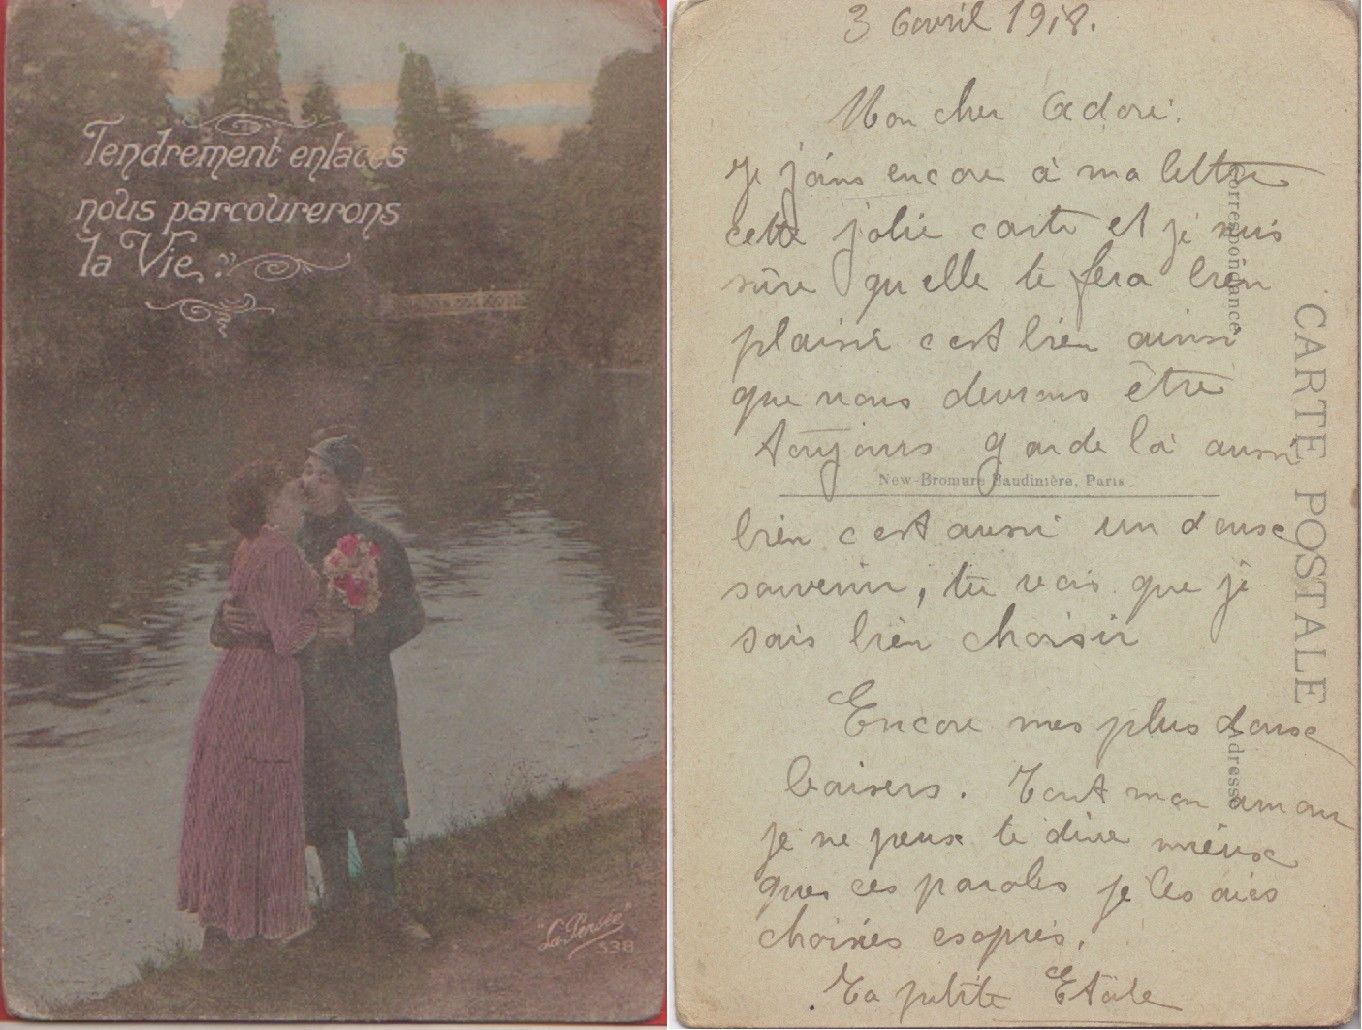 Tendrement enlacés
nous parcourerons
la Vie.
"La Pensée"
538
3 Avril 1918.
Mon cher Adoré.
Je j'oins encore à ma lettre
cette jolie carte et je suis
sûre qu elle te fera bien
plaisir c est bien ainsi
que nous devrons être
toujours garde la aussi
bien c est aussi un doux
souvenir, tu vois que je
sais bien choisir
Encore mes plus doux
baisers. Tout mon amour
je ne peux te dire mieux
que ces paroles je les ais
choisies esoprès.
Ta petite Etoile
Correspondance
CARTE POSTALE
New-Bromure Baudinière, Paris
Adresse